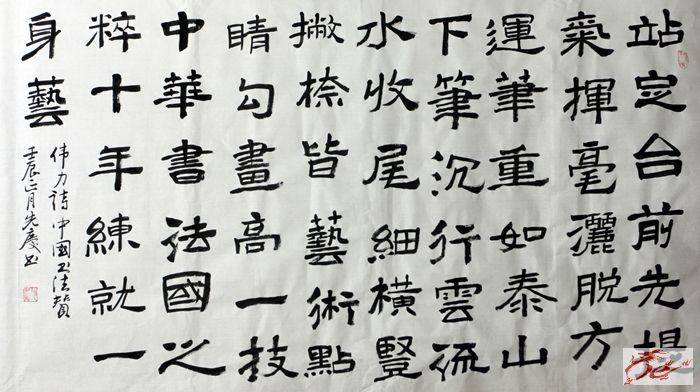 站定台前先提
氣揮毫灑脫方
運筆重如泰山
下筆沉行雲流
水收尾細橫豎
撇捺皆藝術點
睛勾畫高一技
中華書法國之
粹十年練就一
身藝
伟力诗中國书法赞
壬辰正月先慶书